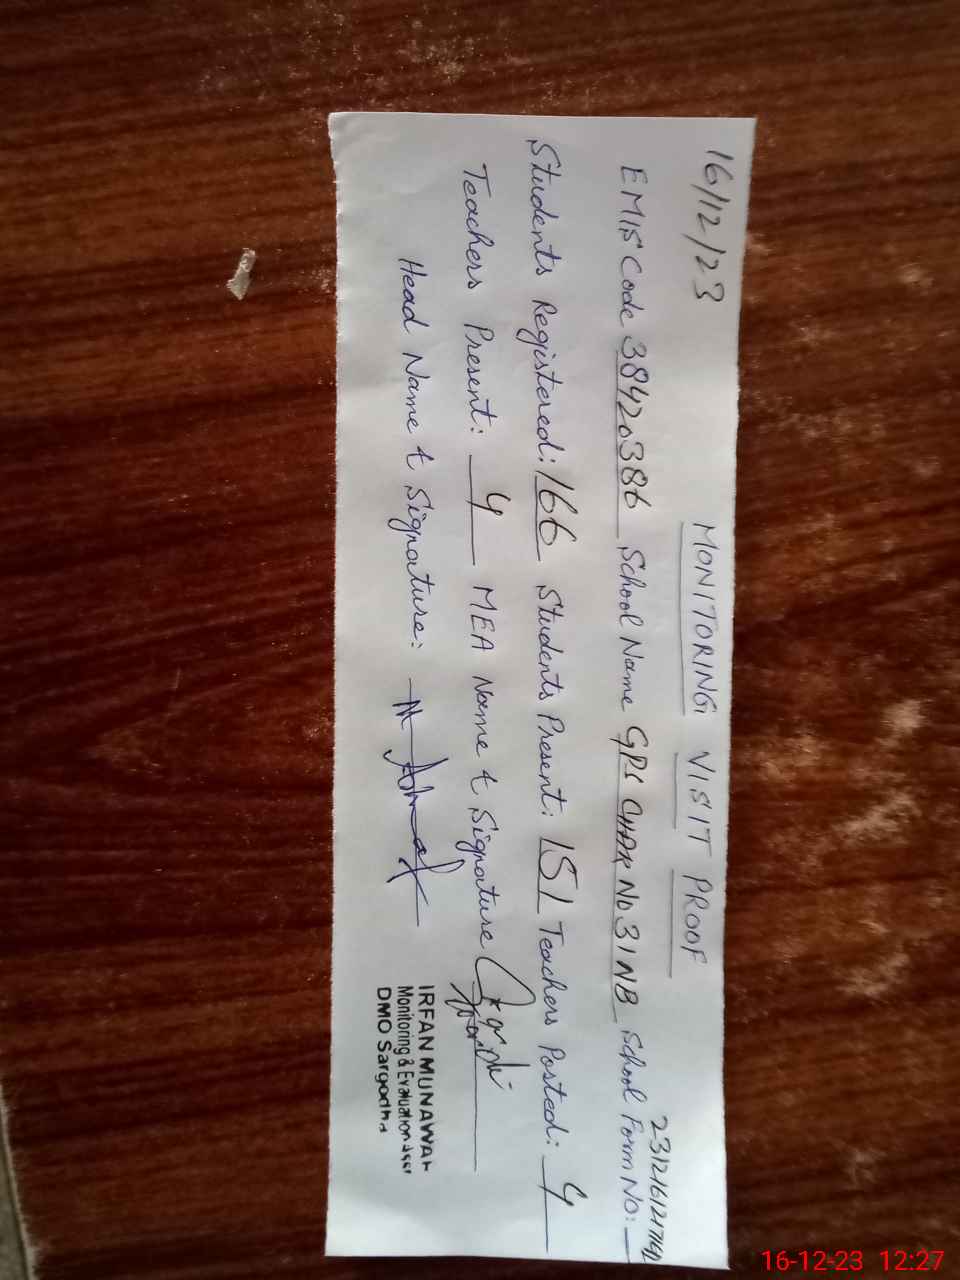 16/12/23
MONITORING VISIT PROOF
EMIS Code 38420386 School Name GPS CHAK No 31 NB School Form No:
Students Registered: 166 Students Present: 151 Teachers Posted: 4
Teachers Present: 4 MEA Name & Signature
Head Name & Signature:
IRFAN MUNAWAR
Monitoring & Evaluation
DMO Sargodha
16-12-23 12:27